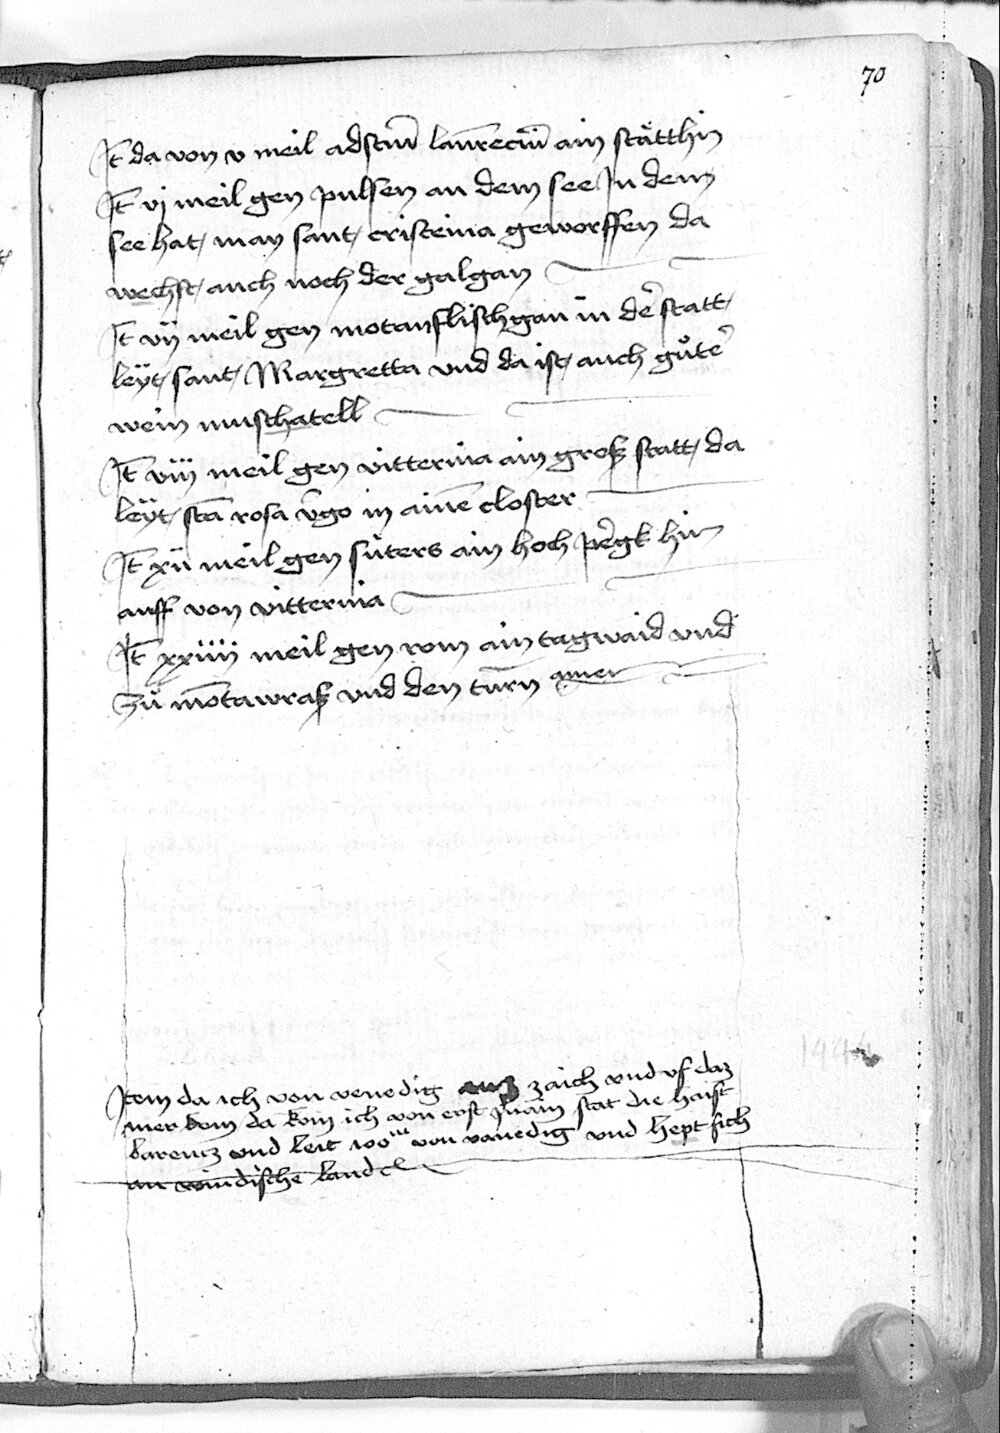 70
It da von v meil ad sanctum laurecium ain stättlin
It vj meil gen pulsen an dem see In dem
see hat man sant cristeina geworffen da
wechst auch noch der galgan
It vij meil gen motanflischgan in der statt
leÿt sant Margretta vnd da ist auch gůter
wein muschatell
It viij meil gen vitterna ain groß statt da
leÿt sta rosa vgo in aine closter
It xij meil gen suters ain hoch pergk hin
auff von vitterna
It xxiiij meil gen rom ain tagwaid vnd
zů motawraß vnd den turn
Item da ich von venedig auß zaich vnd vf daz
mer kom da kom ich von erst stat die haist
barentz vnd leit 100 von vanedig vnd hept sich
an windische landel
1444